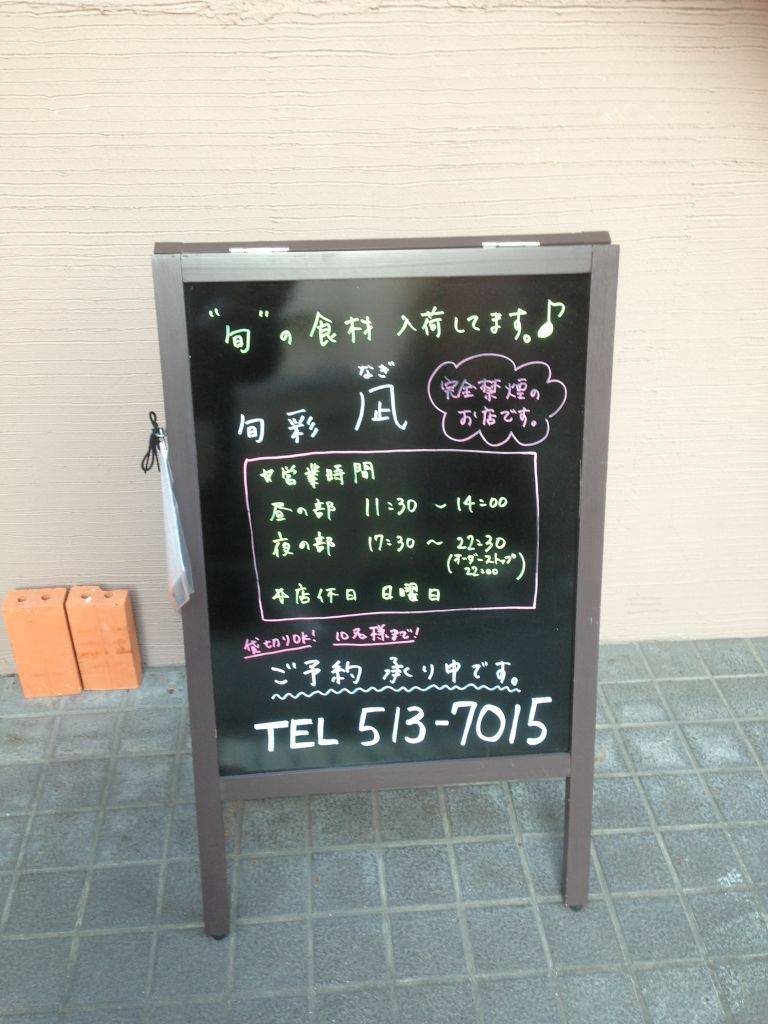 "旬"の食材 入荷してます。♪
なぎ
旬彩 凪
完全禁煙の
お店です。
☆営業時間
昼の部 11:30 ~ 14:00
夜の部 17:30 ~ 22:30
(オーダーストップ
22:00)
☆店休日 日曜日
貸切りOK! 10名様まで!
ご予約 承り中です。
TEL 513-7015